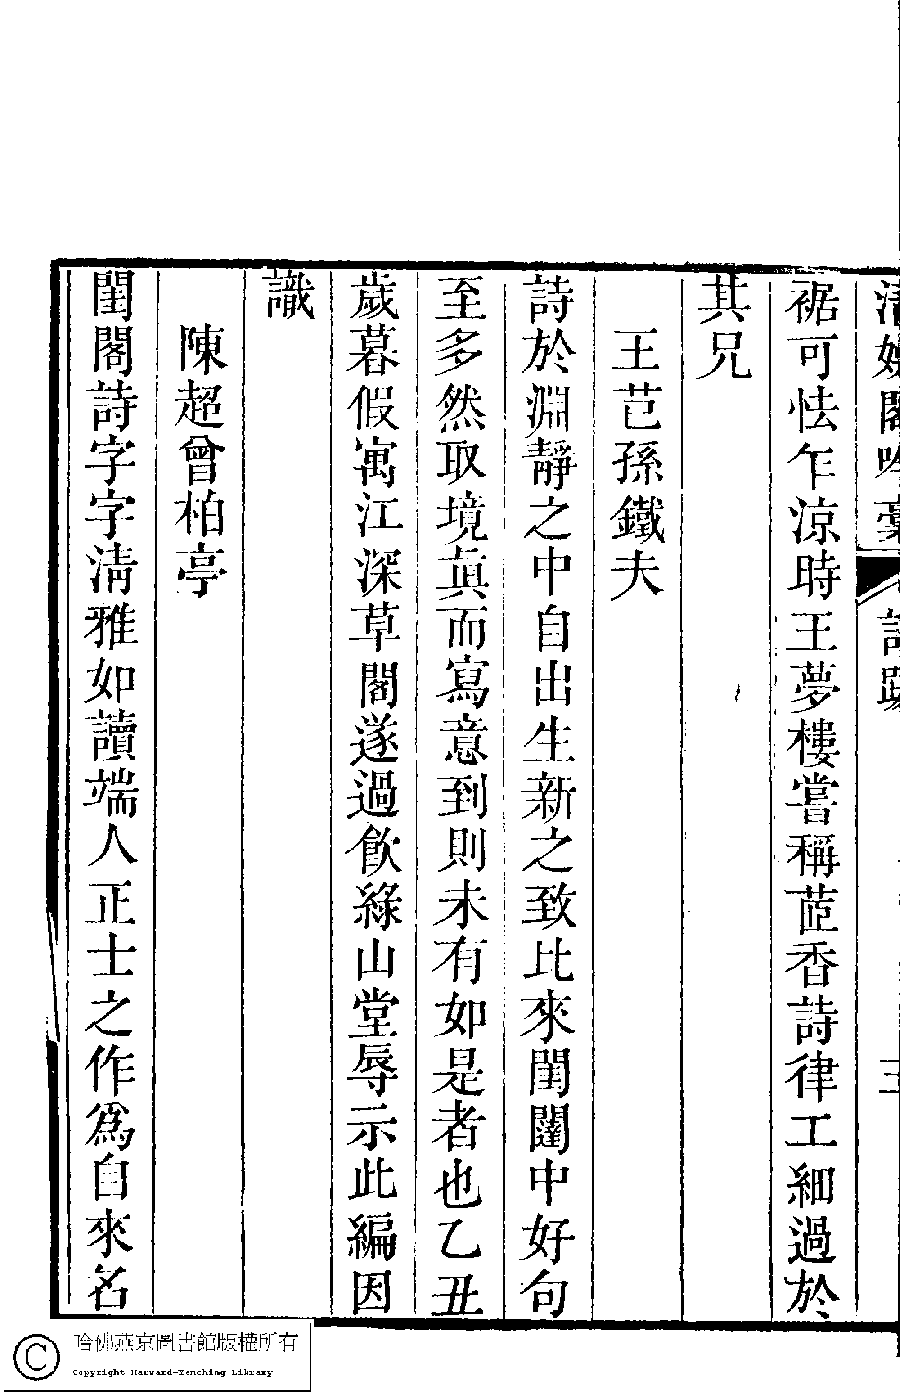 清娛閣吟藁
三
裾可怯乍涼時王夢樓嘗稱茝香詩律工細過於
其兄
王芑孫鐵夫
詩於淵靜之中自出生新之致比來閨闥中好句
至多然取境眞而寫意到則未有如是者也乙丑
歲暮假寓江深草閣遂過飮綠山堂辱示此編因
識
陳超曾柏亭
閨閣詩字字清雅如讀端人正士之作爲自來名
哈佛燕京圖書館版權所有
Copyright Harvard-Yenching Library